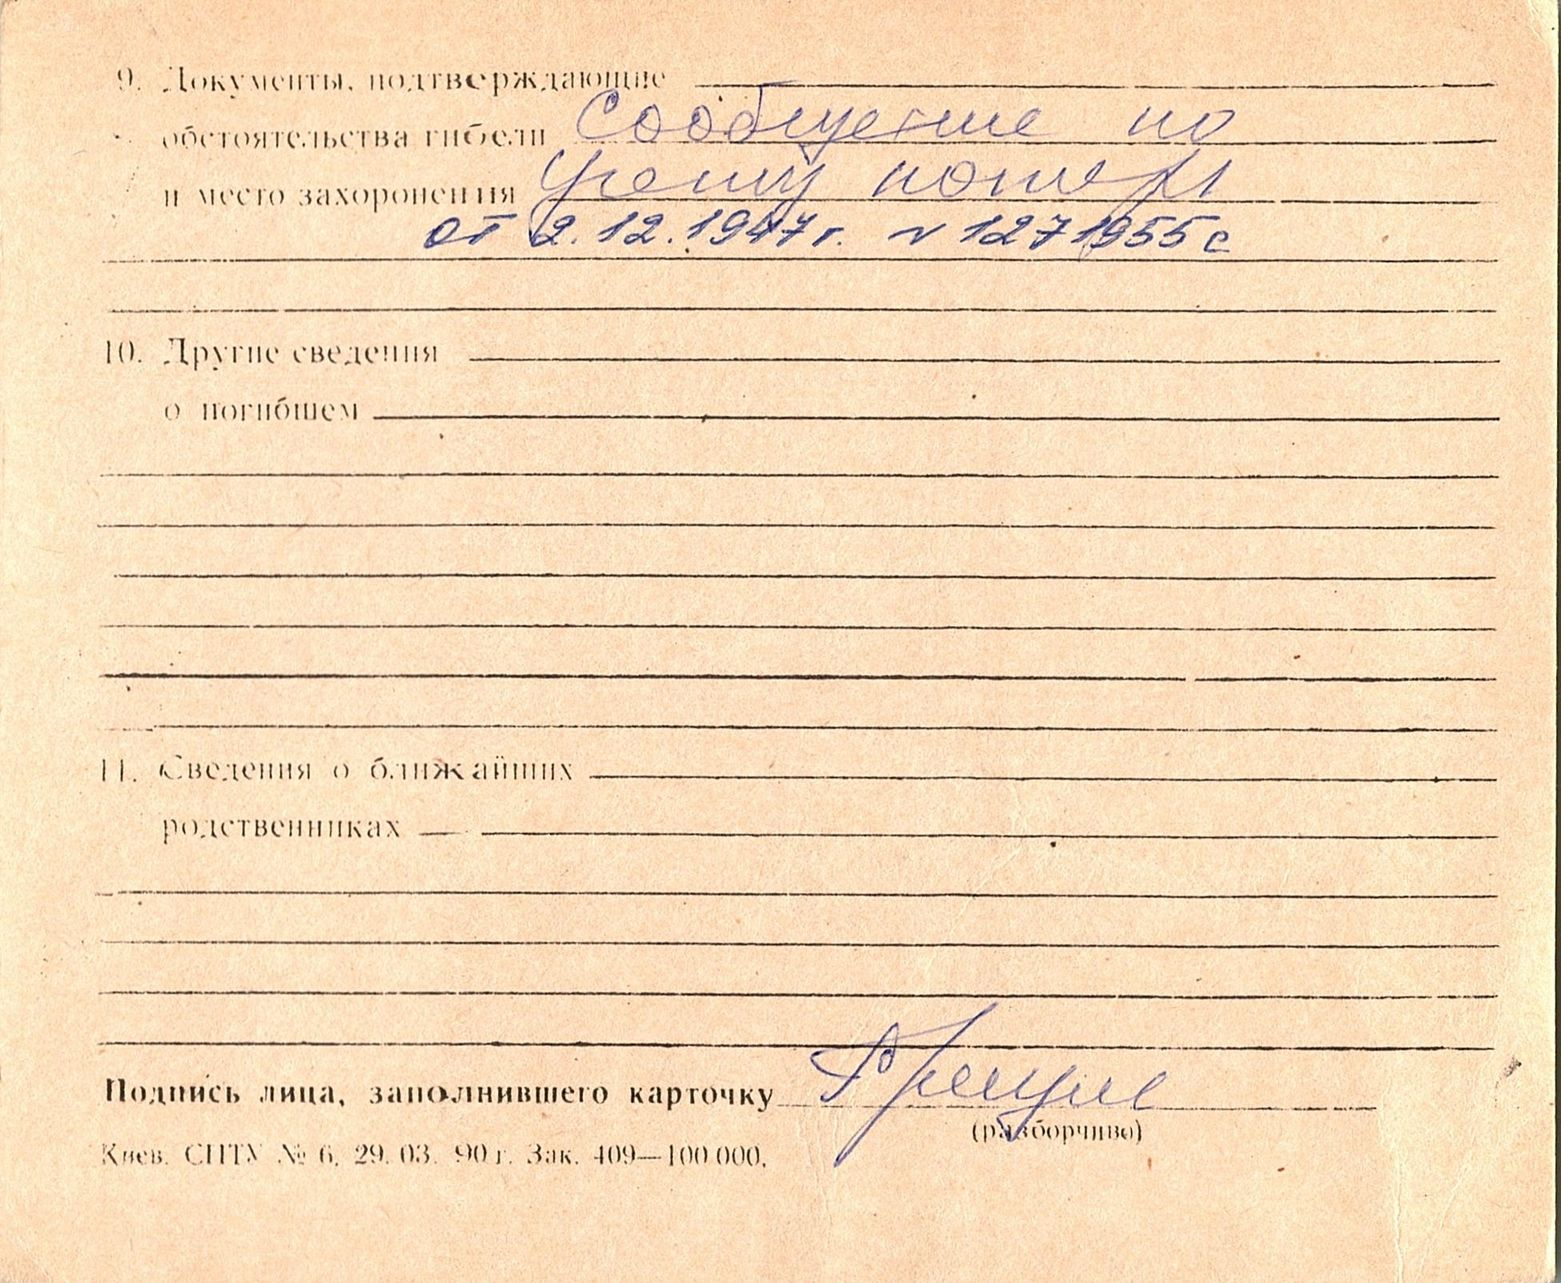 9. Документы, подтверждающие
обстоятельства гибели Сообщение по
и место захоронения Учету потерь
от 2.12.1947г. № 1271955с
10. Другие сведения
о погибшем
11. Сведения о ближайших
родственниках
Подпись лица, заполнившего карточку
(разборчиво)
Киев. СПТУ № 6. 29. 03. 90 г. Зак. 409—100 000.